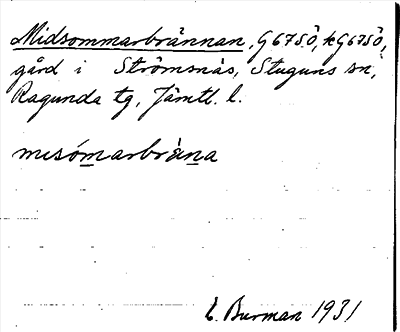 Midsommarbrännan, G675Ö, kG675Ö,
gård i Strömsnäs, Stuguns sn,
Ragunda tg, Jämtl. l.
mesómarbrä̀na
E. Burman 1931